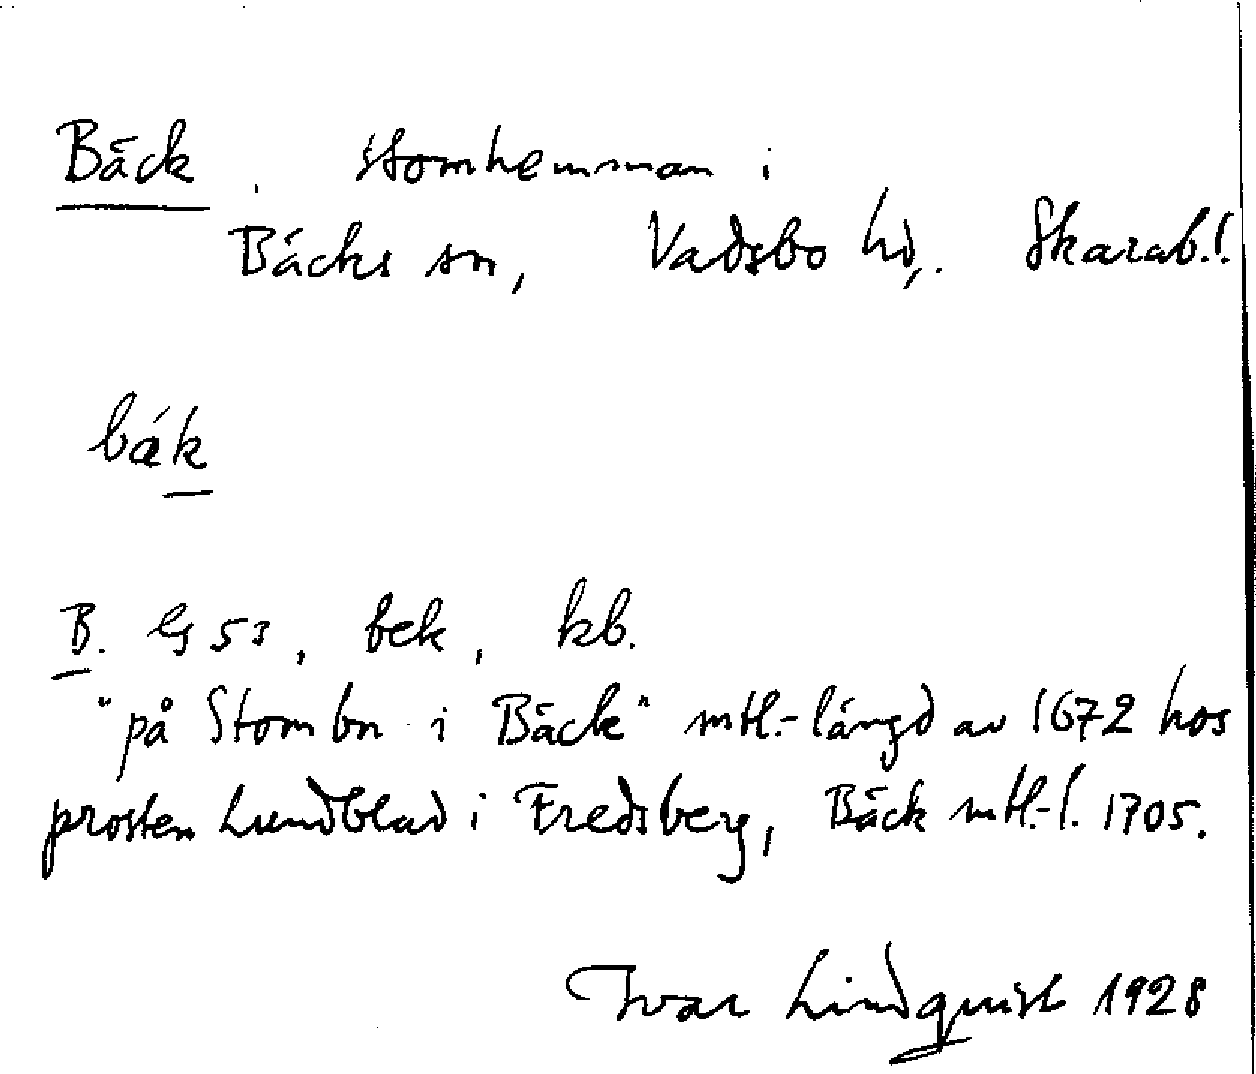 Bäck, stomhemman i
Bäcks sn, Vadsbo hd, Skarab.l.
bák
B. GS 53, bek, kb.
"på Stombn i Bäck" mtl.-längd av 1672 hos
prosten Lundblad i Fredsberg, Bäck mtl.-l. 1705.
Ivar Lindquist 1928